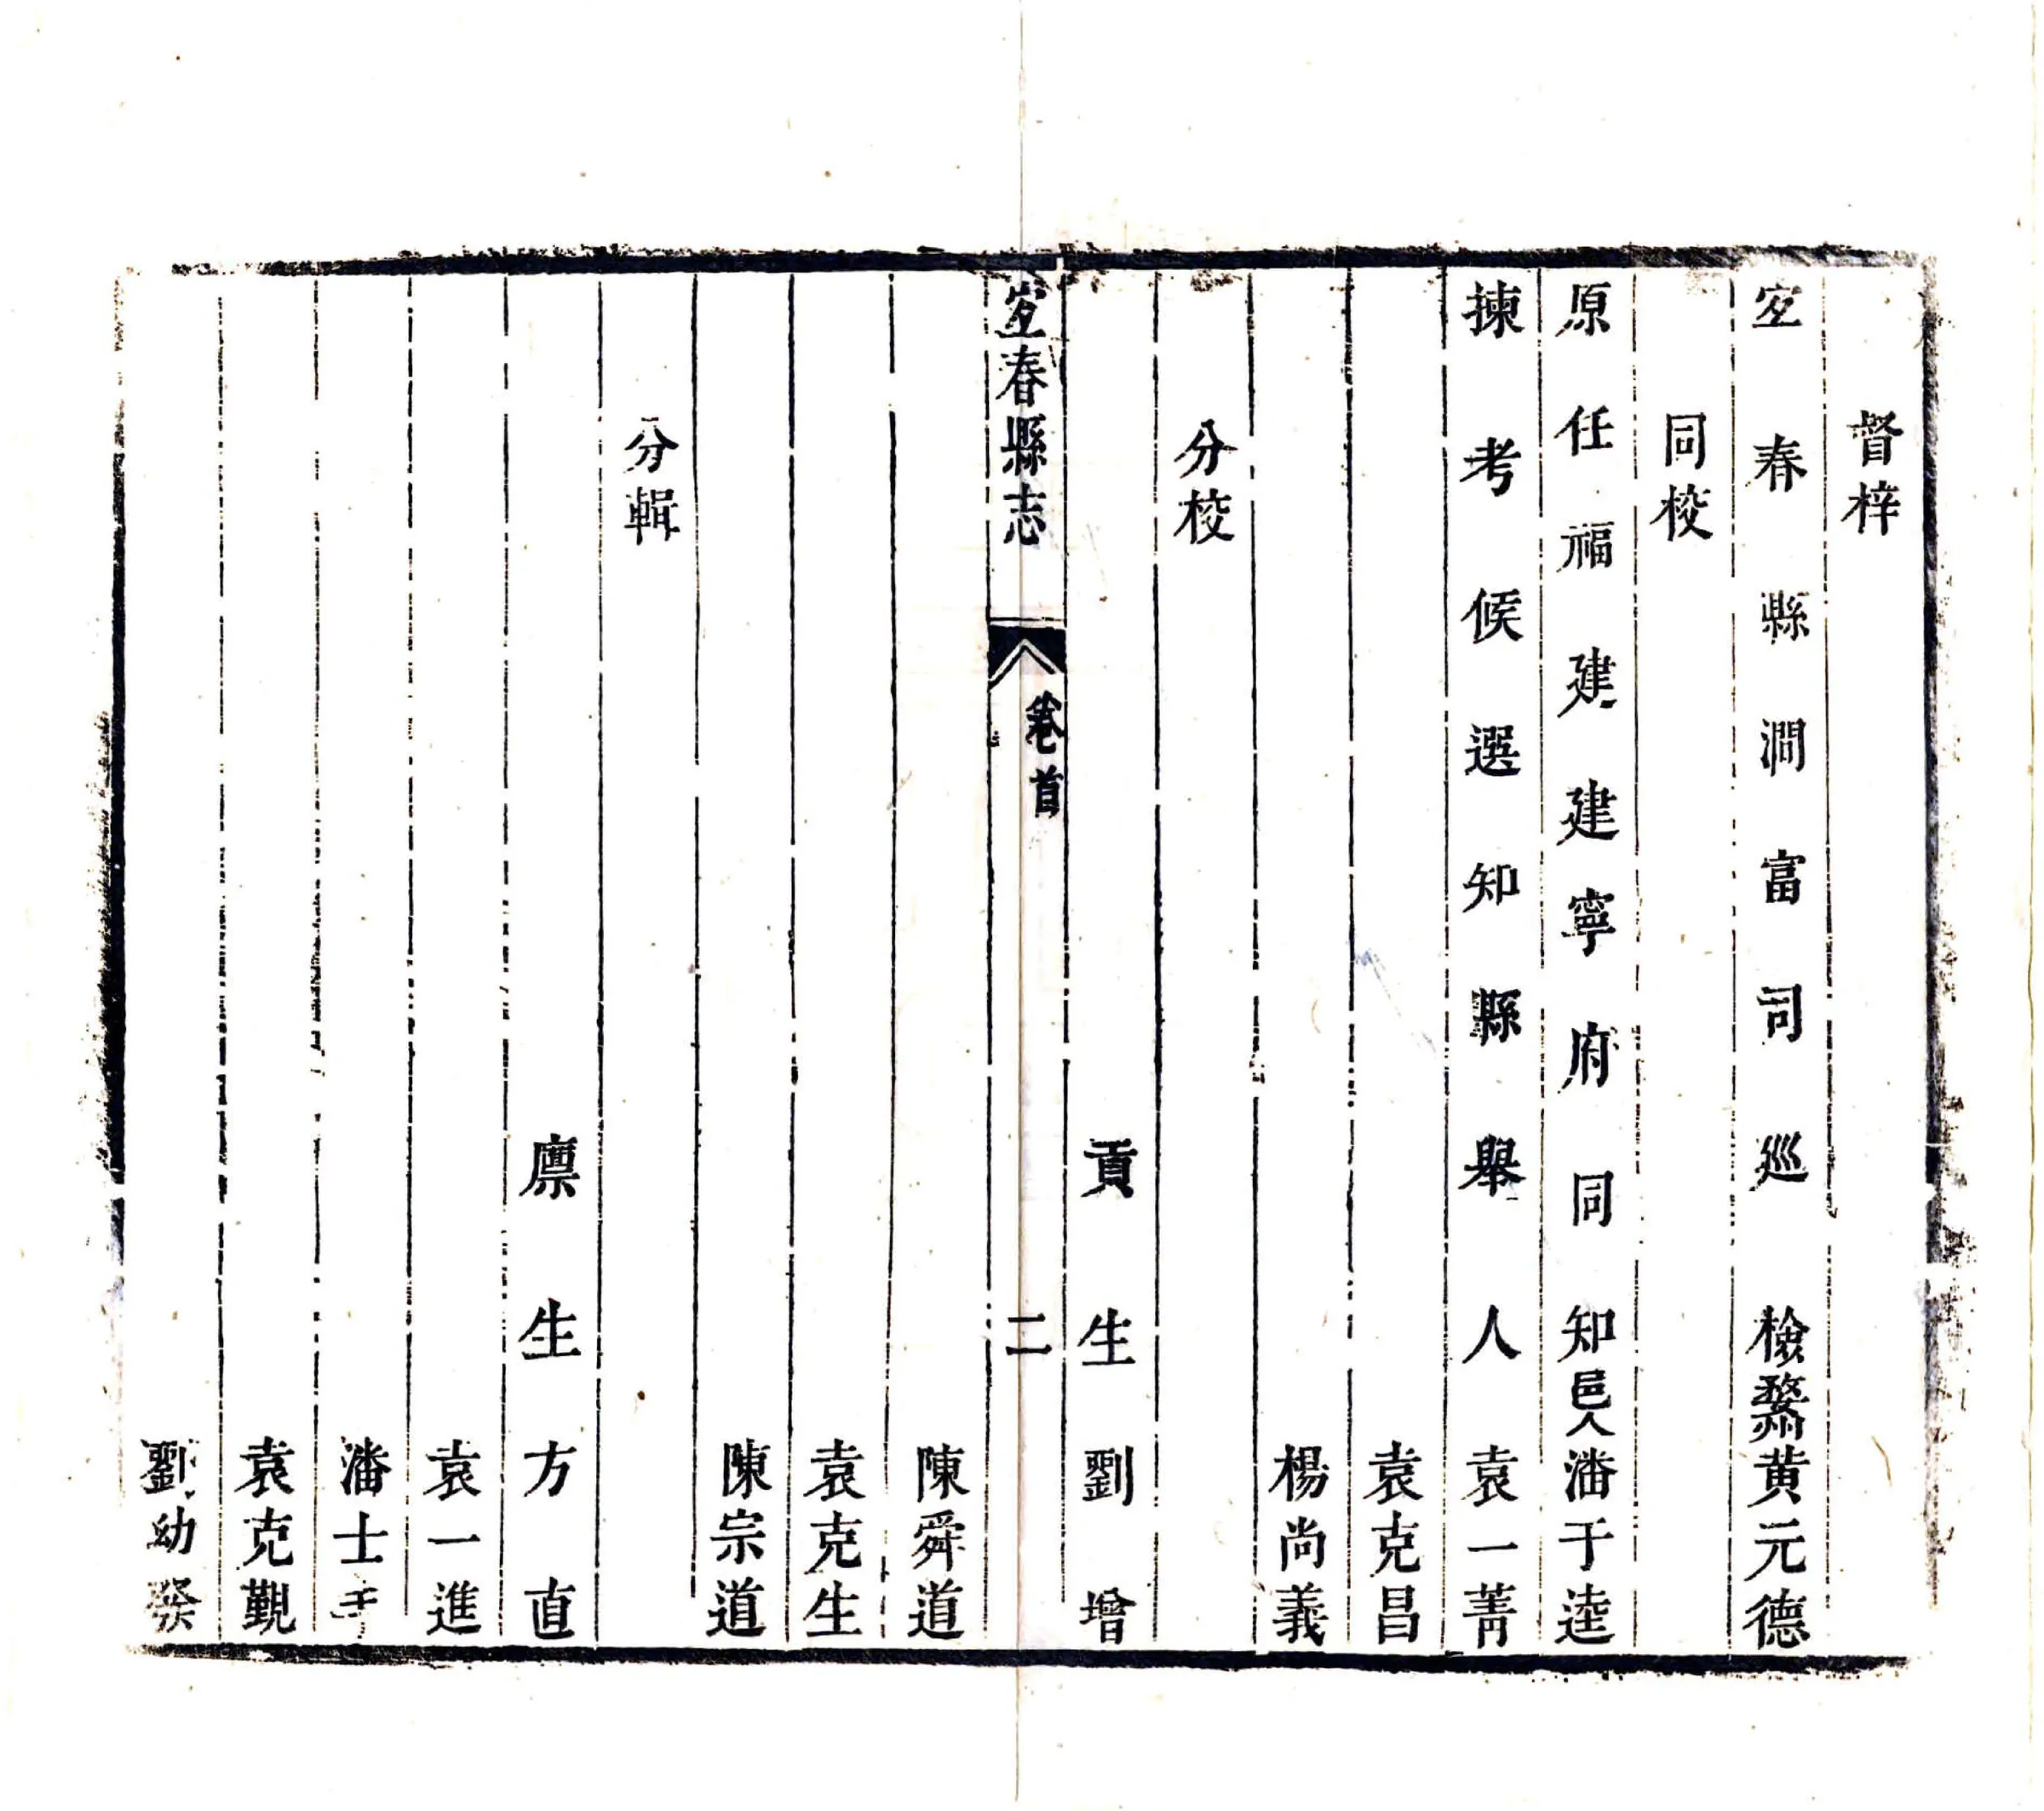 督梓
宐春縣澗富司巡檢黃元德
同校
原任福建建寧府同知邑人潘于逵
揀考候選知縣舉人袁一菁
袁克昌
楊尚義
分校
貢生劉增
宐春縣志 卷首 二
陳舜道
袁克生
陳宗道
分輯
廪生方直
袁一進
潘士
袁克覲
劉幼發